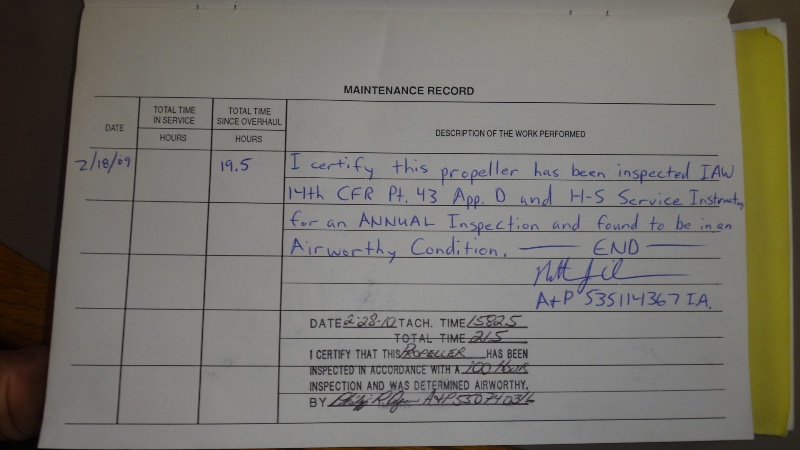 MAINTENANCE RECORD
DATE
TOTAL TIME IN SERVICE
HOURS
TOTAL TIME SINCE OVERHAUL
HOURS
DESCRIPTION OF THE WORK PERFORMED
2/18/09
19.5
I certify this propeller has been inspected IAW
14th CFR Pt. 43 App. D and H-S Service
for an ANNUAL Inspection and found to be in an
Airworthy Condition. — END —
A+P 535114367 I.A.
DATE 2-28-10 TACH. TIME 1582.5
TOTAL TIME 21.5
I CERTIFY THAT THIS PROPELLER HAS BEEN
INSPECTED IN ACCORDANCE WITH A 100 HOUR
INSPECTION AND WAS DETERMINED AIRWORTHY.
BY A+P